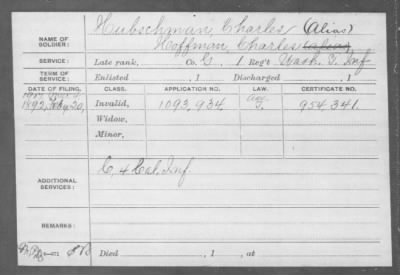 NAME OF SOLDIER: Hubschman, Charles (Alias)
Hoffman, Charles
SERVICE: Late rank, Co. G, 1 Reg't Wash. T. Inf
TERM OF SERVICE: Enlisted , 1 Discharged , 1
DATE OF FILING. CLASS. APPLICATION NO. LAW. CERTIFICATE NO.
1892, 20, Invalid, 1093,934. 954,341.
Widow,
Minor,
ADDITIONAL SERVICES: C, 4 Cal. Inf
REMARKS:
Died , 1 , at